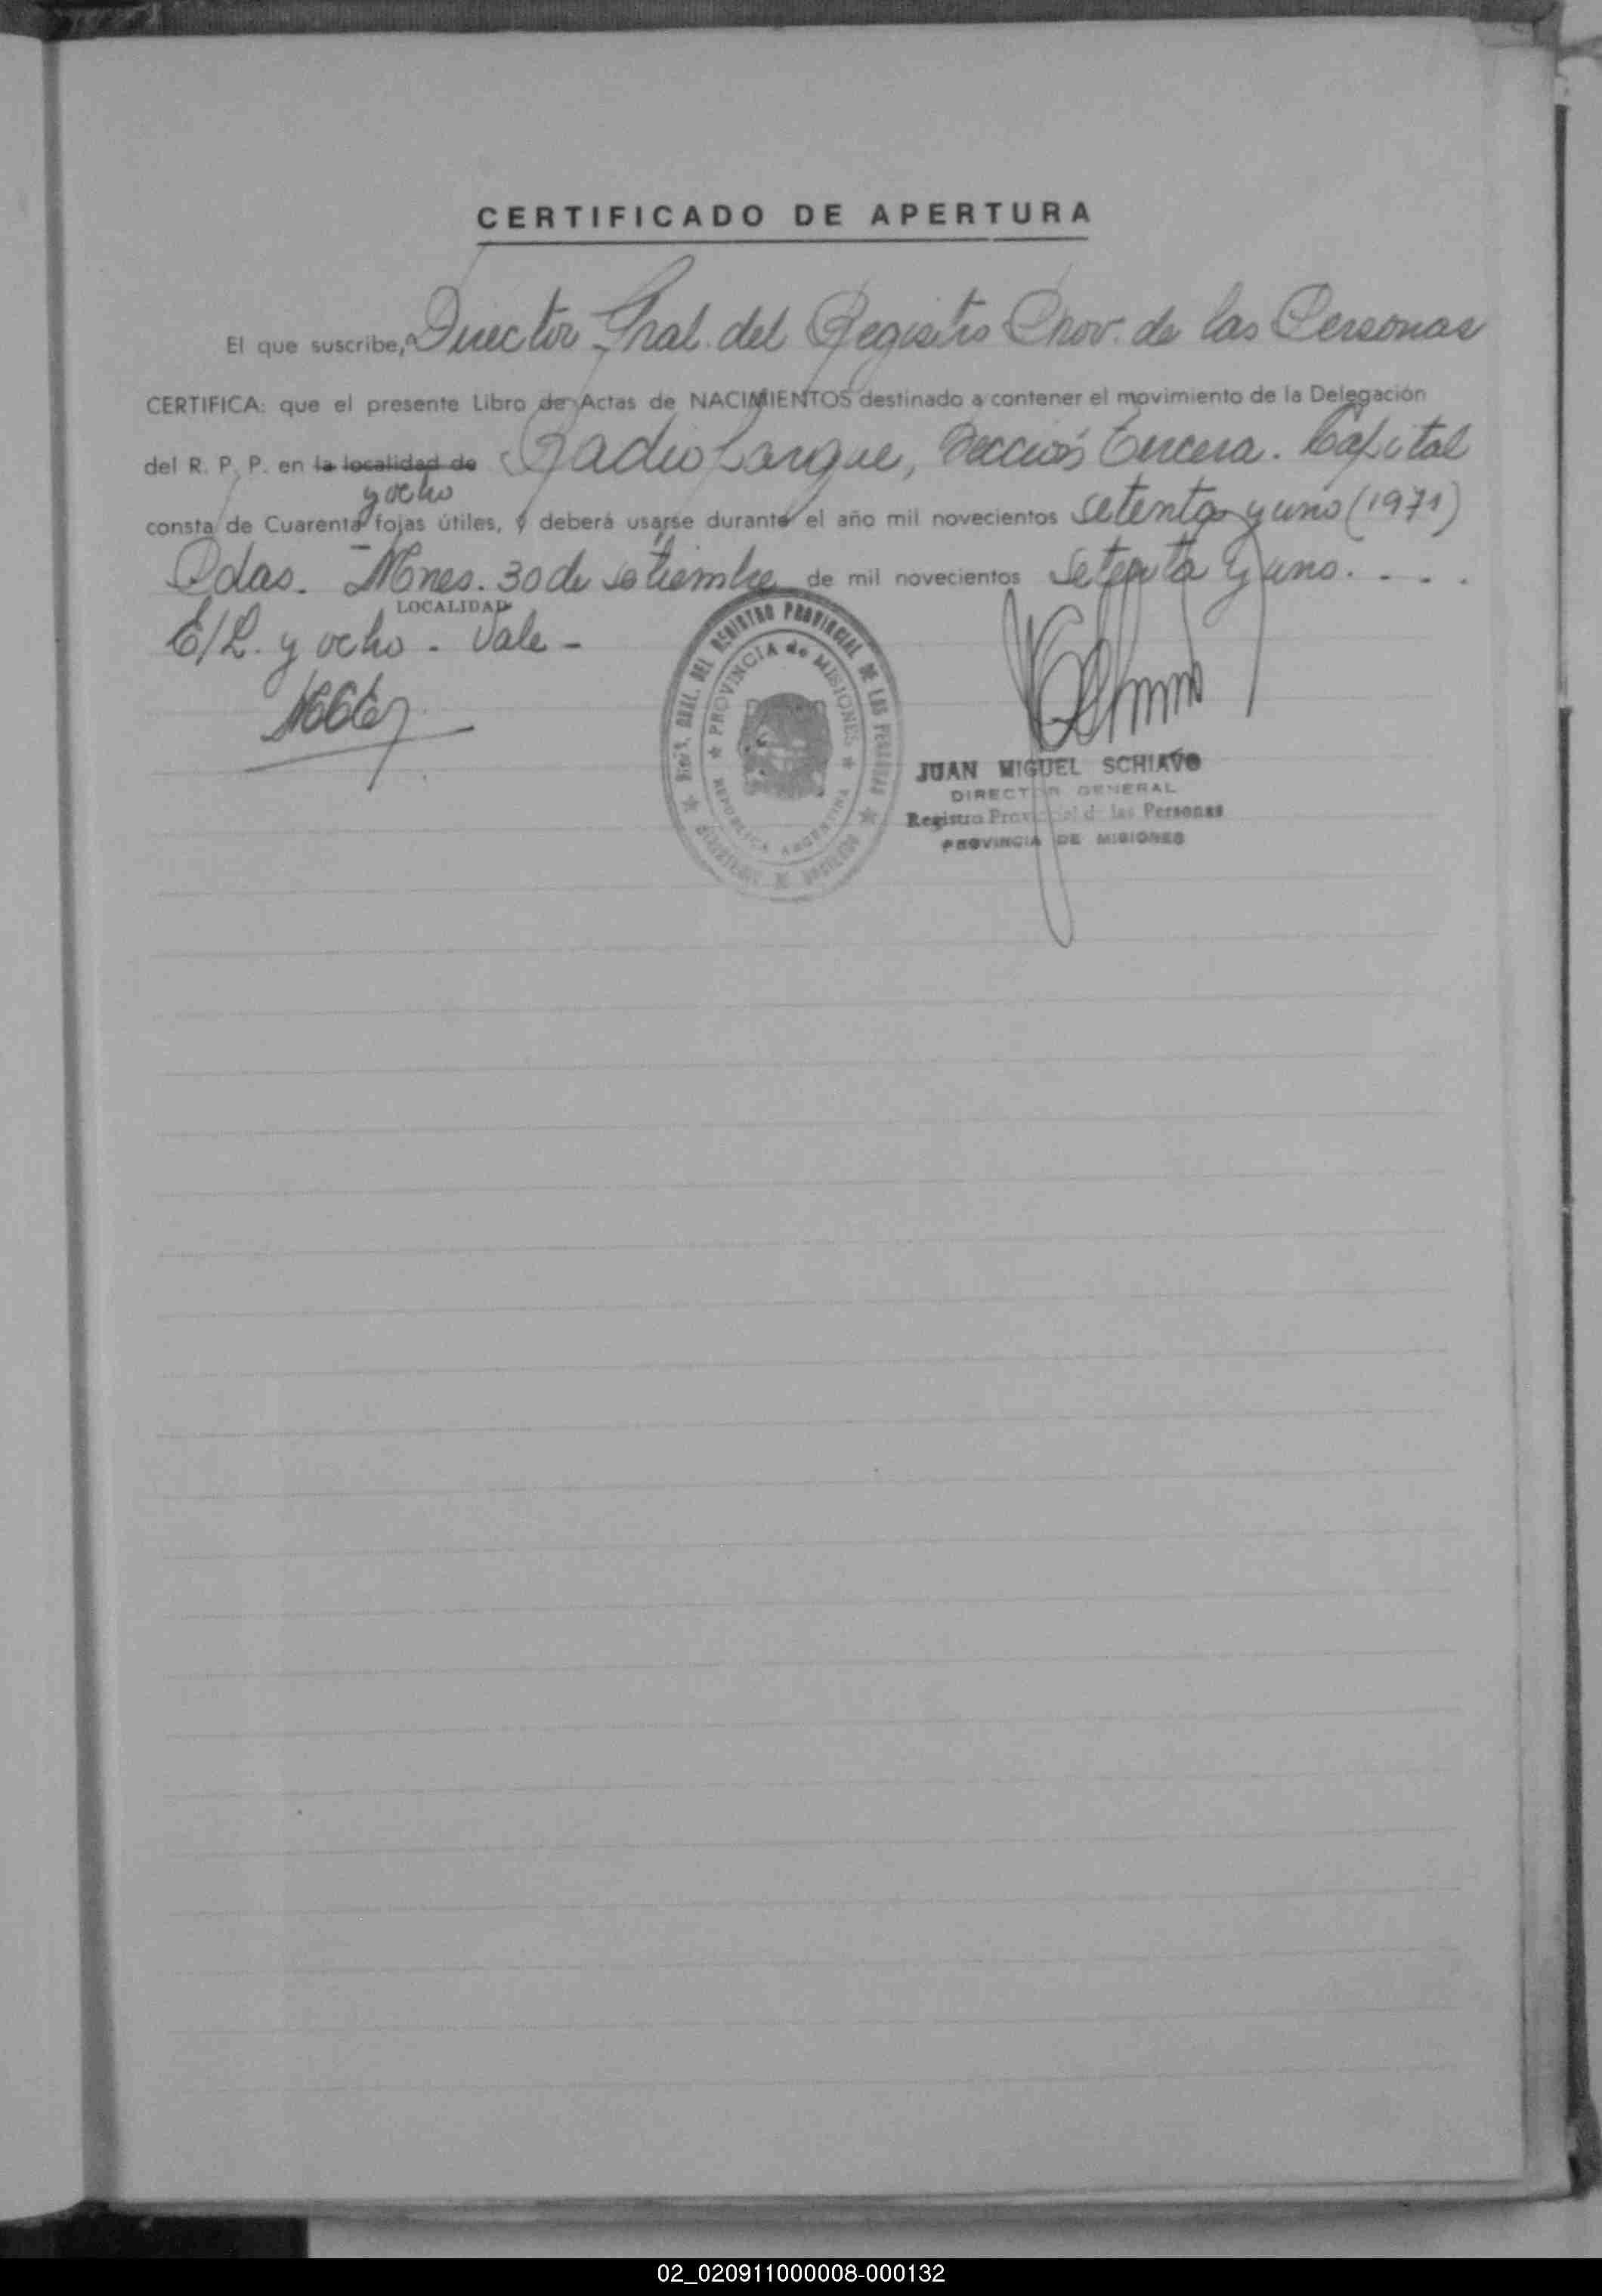 CERTIFICADO DE APERTURA
El que suscribe, Director Gral. del Registro Prov. de las Personas
CERTIFICA: que el presente Libro de Actas de NACIMIENTOS destinado a contener el movimiento de la Delegación
del R. P. P. en la localidad de Radio Parque, Sección Tercera. Capital
y ocho
consta de Cuarenta fojas útiles, y deberá usarse durante el año mil novecientos setenta y uno (1971)
Pdas. Mnes. 30 de setiembre de mil novecientos setenta y uno. - - .
LOCALIDAD
E/L. y ocho - Vale -
DIREC. GRAL. DEL REGISTRO PROVINCIAL DE LAS PERSONAS
PROVINCIA de MISIONES
REPUBLICA ARGENTINA
JUAN MIGUEL SCHIAVO
DIRECTOR GENERAL
Registro Provincial de las Personas
PROVINCIA DE MISIONES
02_020911000008-000132